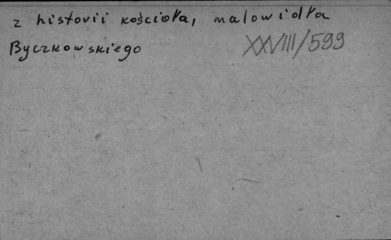 z historii kościoła, malowidła
Byczkowskiego
XXVIII/599